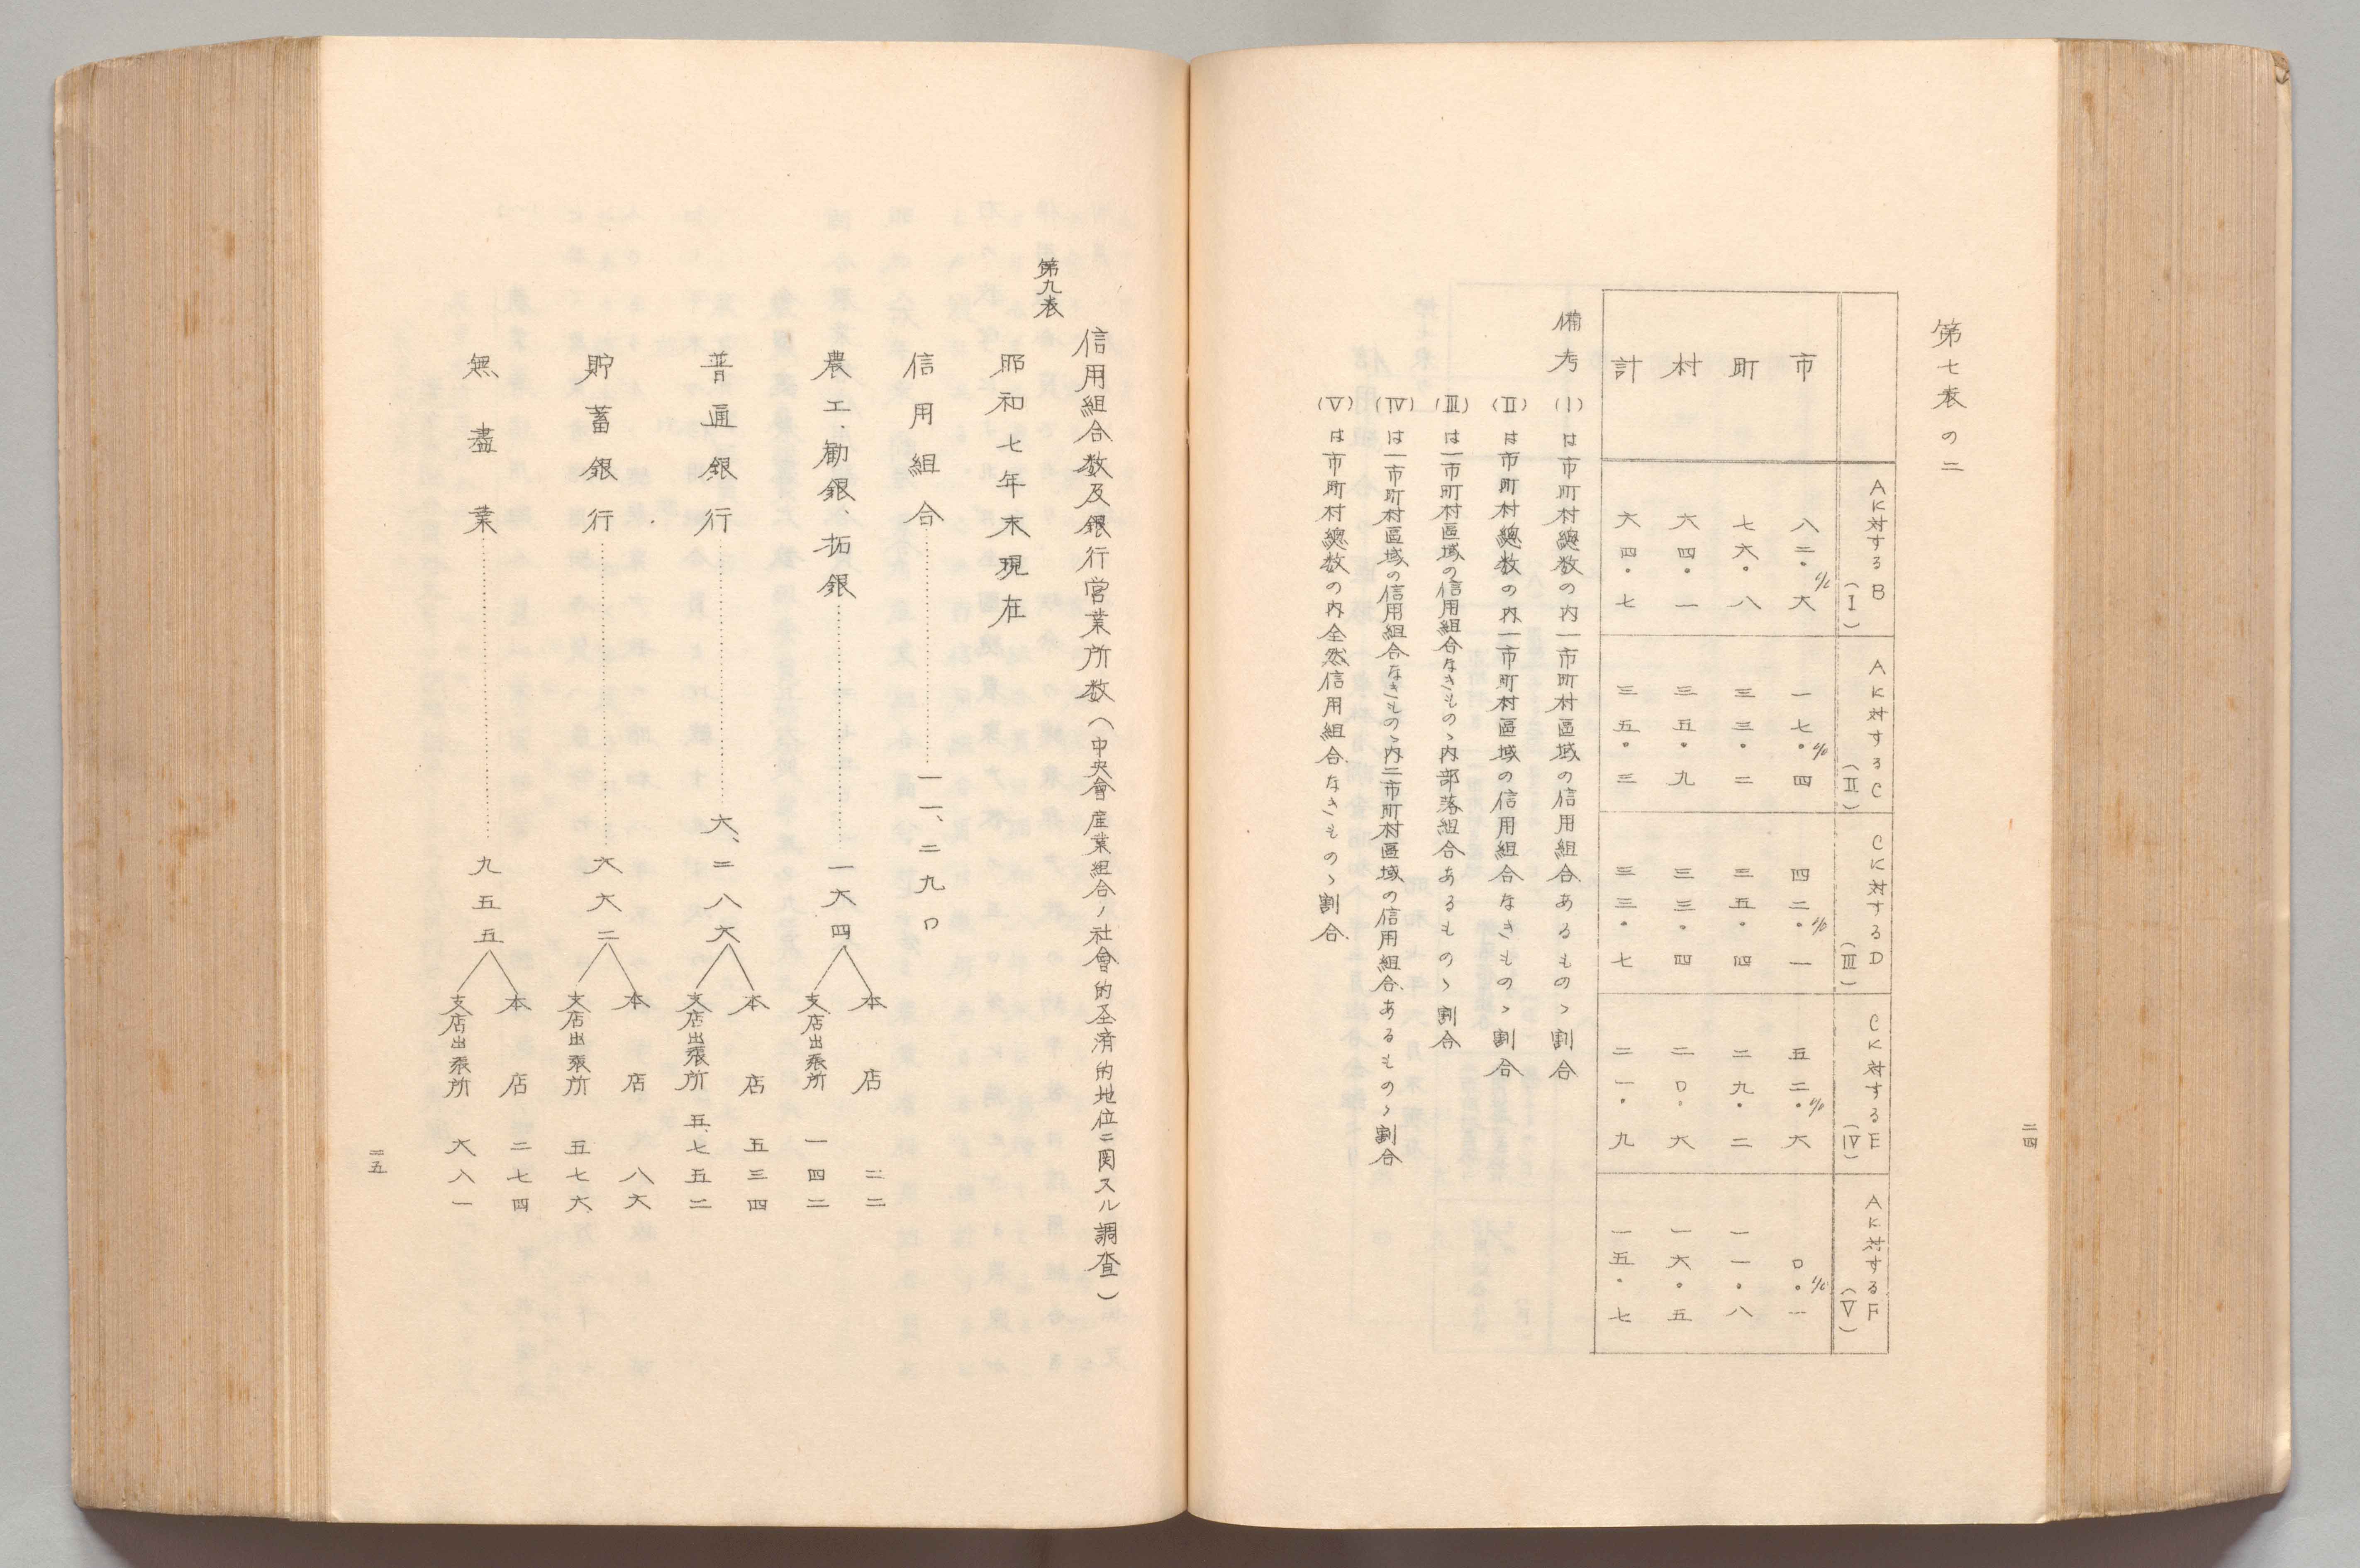 第七表の二
Aに対するB
(Ⅰ)
Aに対するC
(Ⅱ)
Cに対するD
(Ⅲ)
Cに対するE
(Ⅳ)
Aに対するF
(Ⅴ)
市 八二・六% 一七・四% 四二・一% 五二・六% 〇・一%
町 七六・八 三三・二 三五・四 二九・二 一一・八
村 六四・一 三五・九 三三・四 二〇・六 一六・五
計 六四・七 三五・三 三三・七 二一・九 一五・七
備考 (Ⅰ)は市町村總数の内一市町村區域の信用組合あるものゝ割合
(Ⅱ)は市町村總数の内一市町村區域の信用組合なきものゝ割合
(Ⅲ)は一市町村區域の信用組合なきものゝ内部落組合あるものゝ割合
(Ⅳ)は一市町村區域の信用組合なきものゝ内二市町村區域の信用組合あるものゝ割合
(Ⅴ)は市町村總数の内全然信用組合なきものゝ割合
二四
第九表
信用組合数及銀行営業所数(中央會産業組合ノ社會的圣済的地位ニ関スル調査)
昭和七年末現在
信用組合……一一、二九〇
農工、勧銀、拓銀……一六四
本店 二二
支店出張所 一四二
普通銀行……六、二八六
本店 五三四
支店出張所 五、七五二
貯蓄銀行……六六二
本店 八六
支店出張所 五七六
無盡業……九五五
本店 二七四
支店出張所 六八一
二五